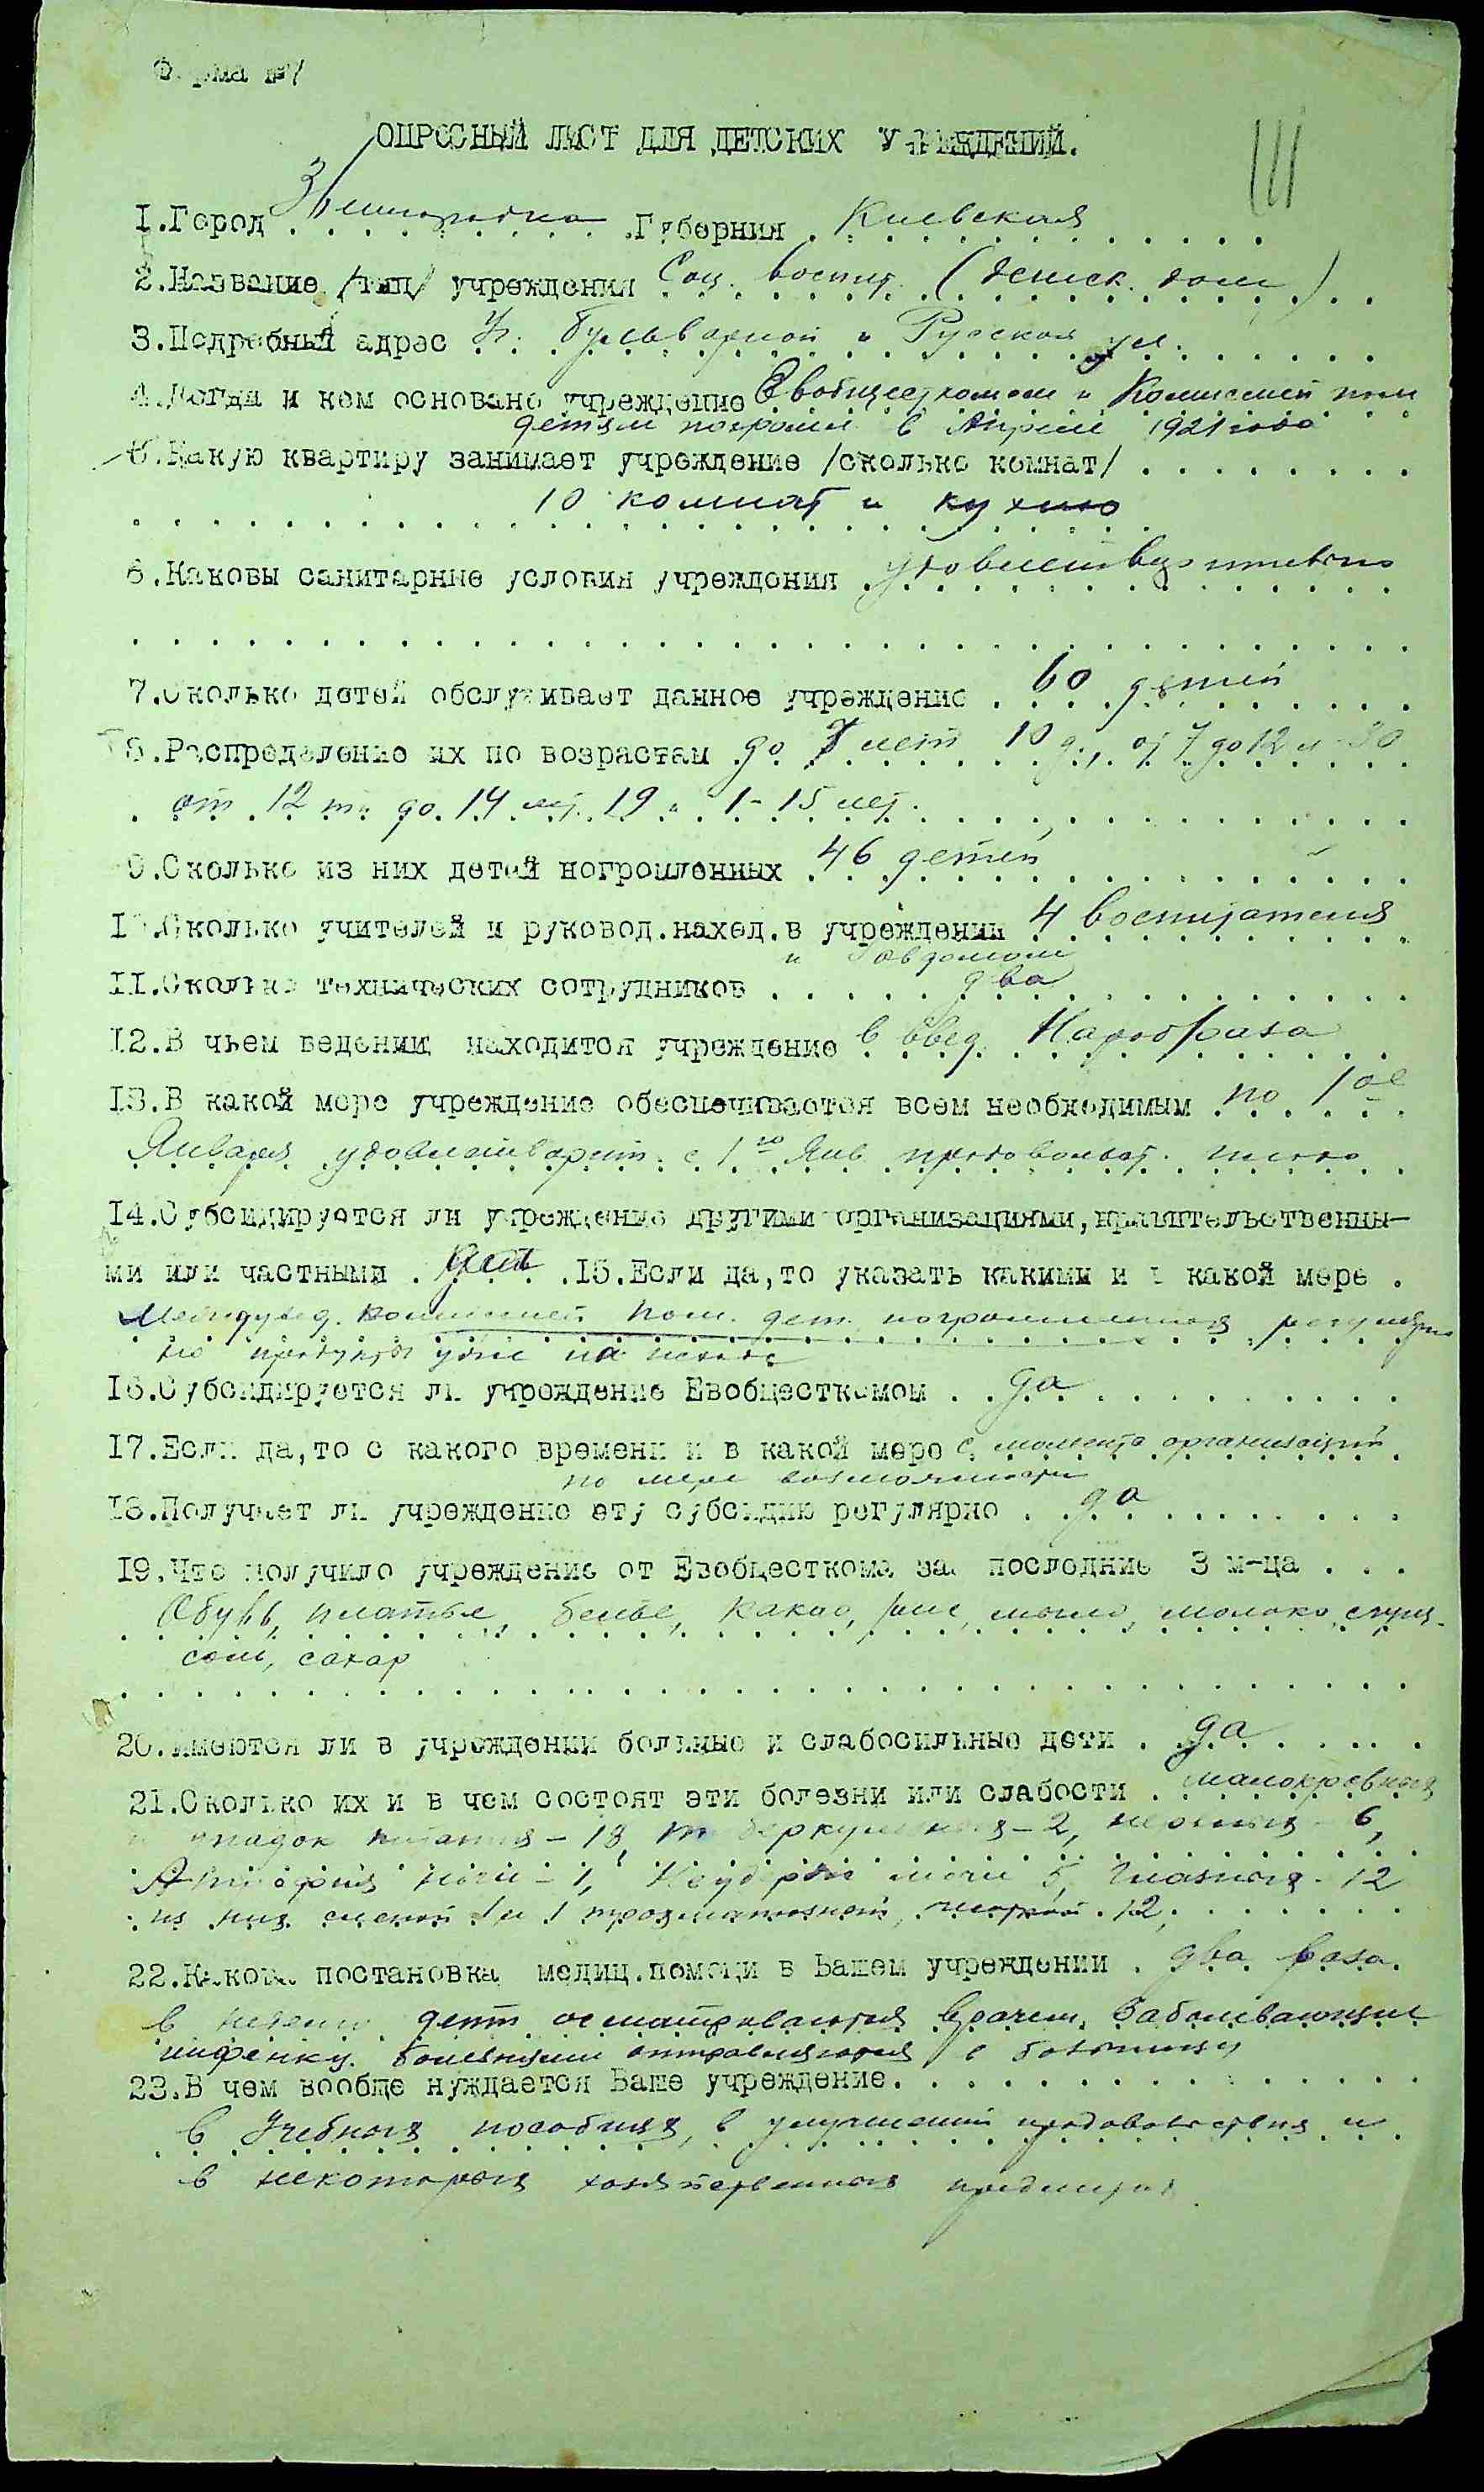 Форма №7
ОПРОСНЫЙ ЛИСТ ДЛЯ ДЕТСКИХ УЧРЕЖДЕНИЙ.
III
1.Город Звенигородка .Губерния Киевская
2.Название /тип/ учреждения Соц. воспит. (детск. дом)
3.Подробный адрес Уг. Бульварной и Русской ул.
4.Когда и кем основано учреждение Евобщесткомом и Комиссией пом
детям погрома в Апреле 1921 года
5.Какую квартиру занимает учреждение /сколько комнат/
10 комнат и кухню
6.Каковы санитарные условия учреждения удовлетворительно
7.Сколько детей обслуживает данное учреждение 60 детей
8.Распределение их по возрастам до 7 лет 10 д., от 7 до 12 л - 30
от 12 ти до 14 лет. 19 и 1 - 15 лет.
9.Сколько из них детей погромленных 46 детей
10.Сколько учителей и руковод.наход.в учреждении 4 воспитателя
и Завдомом
11.Сколько технических сотрудников два
12.В чьем ведении находится учреждение в введ. Наробраза
13.В какой мере учреждение обеспечивается всем необходимым по 1ое
Января удовлетворит. с 1го Янв. продовольст. плохо
14.Субсидируется ли учреждение другими организациями,правительственны-
ми или частными да .15.Если да,то указать какими и в какой мере .
Междувед. комиссией пом. дет. погромленных регулярно
но продукты уже на исходе
16.Субсидируется ли учреждение Евобщесткомом да
17.Если да,то с какого времени и в какой мере с момента организации
по мере возможности
18.Получает ли учреждение эту субсидию регулярно да
19.Что получило учреждение от Евобщесткома за последние 3 м-ца
Обувь, платье, белье, какао, рис, мыло, молоко,
соль, сахар
20.Имеются ли в учреждении больные и слабосильные дети да
21.Сколько их и в чем состоят эти болезни или слабости малокровных
и упадок питания - 18, туберкулезных - 2, 6,
Атрофия ноги - 1, мочи 5, Глазных - 12
из них слепой 1 и 1 12,
22.Какова постановка медиц.помощи в Вашем учреждении два раза
в неделю дети осматриваются врачем. Заболевающие
инфекц. болезнями отправляются в больницу
23.В чем вообще нуждается Ваше учреждение.
В Учебных пособиях, в улучшении продовольствия и
в некоторых хозяйственных предметах